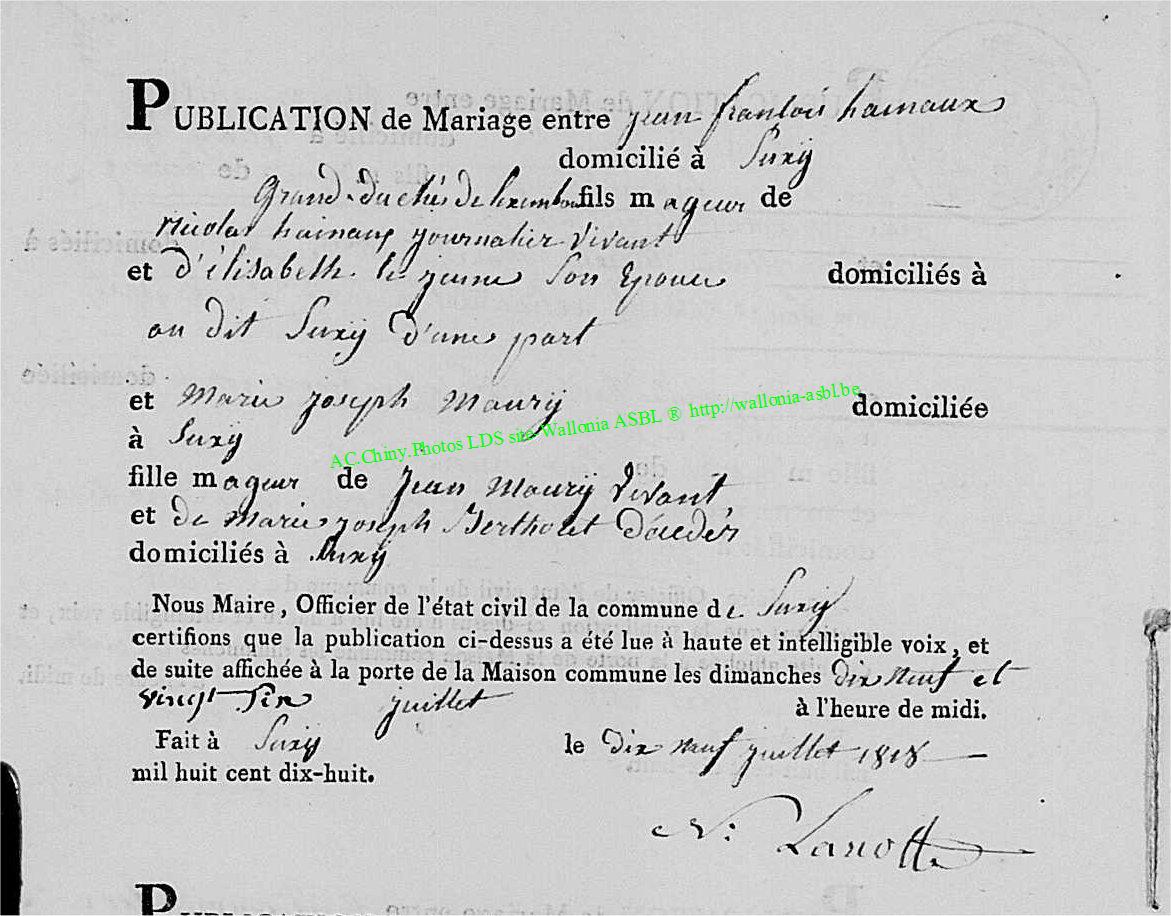 PUBLICATION de Mariage entre jean franlois hainaux
domicilié à Suxÿ
Grand-duché de luxembou fils mageur de
Nicolas hainaux journalier vivant
et d'élisabeth le jeune Son Epouse domiciliés à
au dit Suxÿ d'une part
et Marie joseph Maurÿ domiciliée
à Suxÿ
AC.Chiny.Photos LDS site Wallonia ASBL ® http://wallonia-asbl.be
fille mageur de Jean Maurÿ Vivant
et de Marie joseph Bertholet
domiciliés à Suxÿ
Nous Maire, Officier de l'état civil de la commune de Suxÿ
certifions que la publication ci-dessus a été lue à haute et intelligible voix, et
de suite affichée à la porte de la Maison commune les dimanches dix neuf et
vingt Six juillet à l'heure de midi.
Fait à Suxÿ le dix neuf juillet 1818
mil huit cent dix-huit.
N: Lanotte
PUBLICATION de Mariage entre